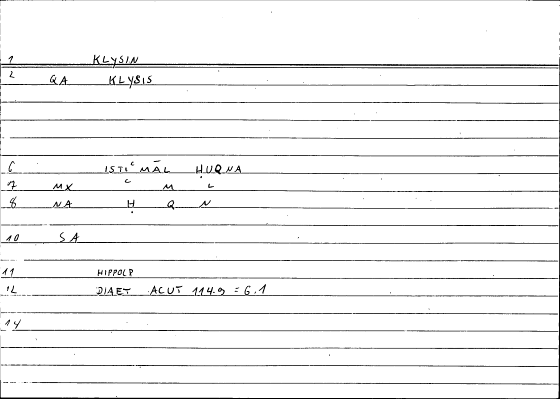 1 KLYSIN
2 QA KLYSIS
6 ISTIʿMĀL ḤUQNA
7 MX ʿ M L
8 NA Ḥ Q N
10 SA
11 HIPPOLP
12 DIAET ACUT 114.9 = 6.1
14